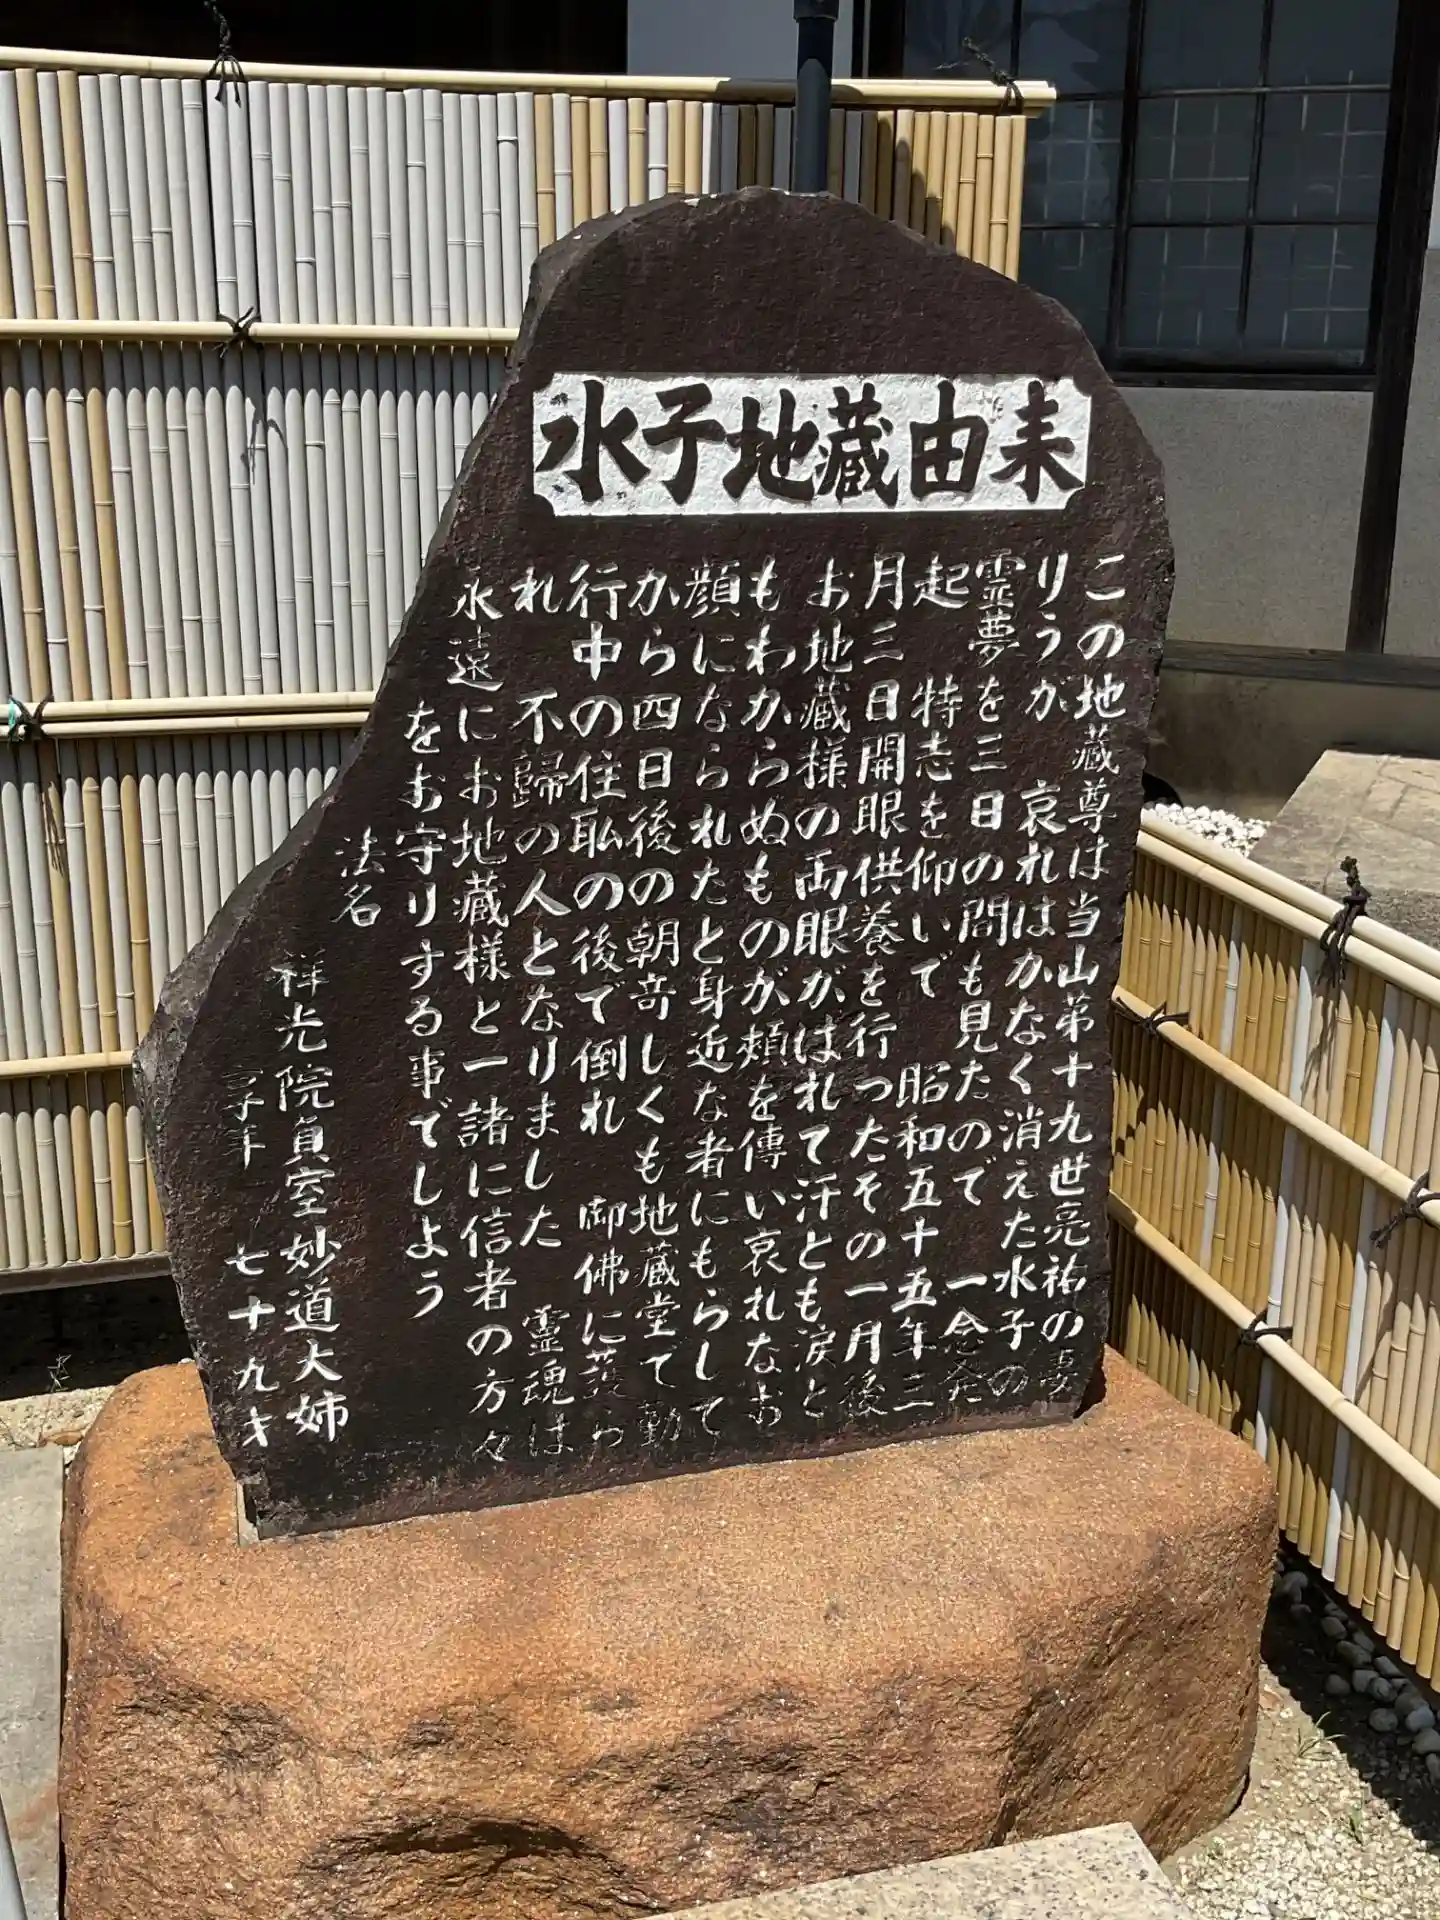 水子地蔵由来
この地蔵尊は当山第十九世亮祐の妻
りうが 哀れはかなく消えた水子の
霊夢を三日の間も見たので 一念発
起 特志を仰いで 昭和五十五年三
月三日開眼供養を行ったその一月後
お地蔵様の両眼がはれて汗とも涙と
もわからぬものが頬を傳い哀れなお
顔になられたと身近な者にもらして
から四日後の朝奇しくも地蔵堂で勤
行中の住職の後で倒れ 御佛に護ら
れ 不歸の人となりました 霊魂は
永遠にお地蔵様と一諸に信者の方々
をお守りする事でしよう
法名
祥光院貞室妙道大姉
享年 七十九才